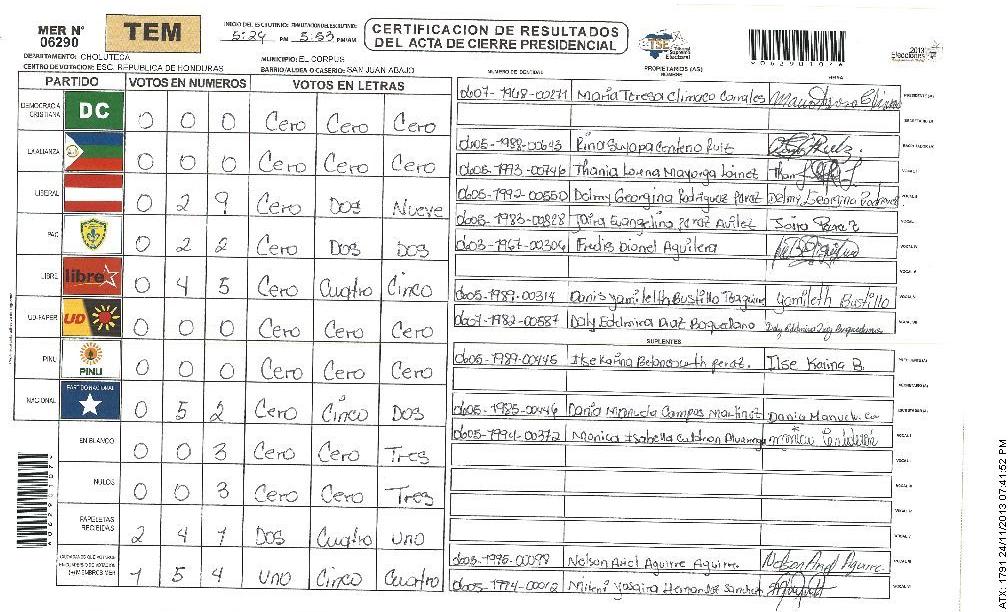 MER N° 06290
TEM
INICIO DEL ESCRUTINIO: FINALIZACION DEL ESCRUTINIO:
5:24 PM 5:53 PM/AM
CERTIFICACION DE RESULTADOS
DEL ACTA DE CIERRE PRESIDENCIAL
TSE Tribunal Supremo Electoral
2013 Elecciones
DEPARTAMENTO: CHOLUTECA
MUNICIPIO: EL CORPUS
CENTRO DE VOTACION: ESC. REPUBLICA DE HONDURAS
BARRIO/ALDEA O CASERIO: SAN JUAN ABAJO
PARTIDO VOTOS EN NUMEROS VOTOS EN LETRAS
DEMOCRACIA CRISTIANA DC 0 0 0 Cero Cero Cero
LA ALIANZA 0 0 0 Cero Cero Cero
LIBERAL 0 2 9 Cero Dos Nueve
PAC 0 2 2 Cero Dos Dos
LIBRE libre 0 4 5 Cero Cuatro Cinco
UD-FAPER UD 0 0 0 Cero Cero Cero
PINU PINU 0 0 0 Cero Cero Cero
NACIONAL PARTIDO NACIONAL 0 5 2 Cero Cinco Dos
EN BLANCO 0 0 3 Cero Cero Tres
NULOS 0 0 3 Cero Cero Tres
PAPELETAS RECIBIDAS 2 4 1 Dos Cuatro Uno
1 5 4 Uno Cinco Cuatro
NUMERO DE IDENTIDAD PROPIETARIOS (AS) NOMBRE FIRMA
0607-1968-00271 Maria Teresa Climaco Corrales
0605-1988-00643 Rina Suyapa Centeno Ruiz
0605-1993-00746 Thania Lorena Mayorga
0605-1992-00550 Dolmy Georgina Rodriguez Perez Delmy Georgina
0605-1983-00828 Joira Evangelina Peraz Joira Perez
0603-1967-00304 Fredis Dionel Aguilera
0605-1989-00314 Danis Yamileth Bustillo Yamileth Bustillo
0607-1982-00587 Doly Edelmira Diaz Boquedano
SUPLENTES
0605-1989-00445 Ilse Karina Betancourth Peraz. Ilse Karina B.
0605-1985-00446 Dania Manuela Campos Martinez Dania Manuela Ca
0605-1994-00372 Monica Isabella Monica
0605-1995-00098 Nelson Ariel Aguirre Aguirre Nelson Ariel Aguirre
0605-1994-00012 Yosaira Hernandez Sanchez
ATX1 1791 24/11/2013 07:41:52 PM